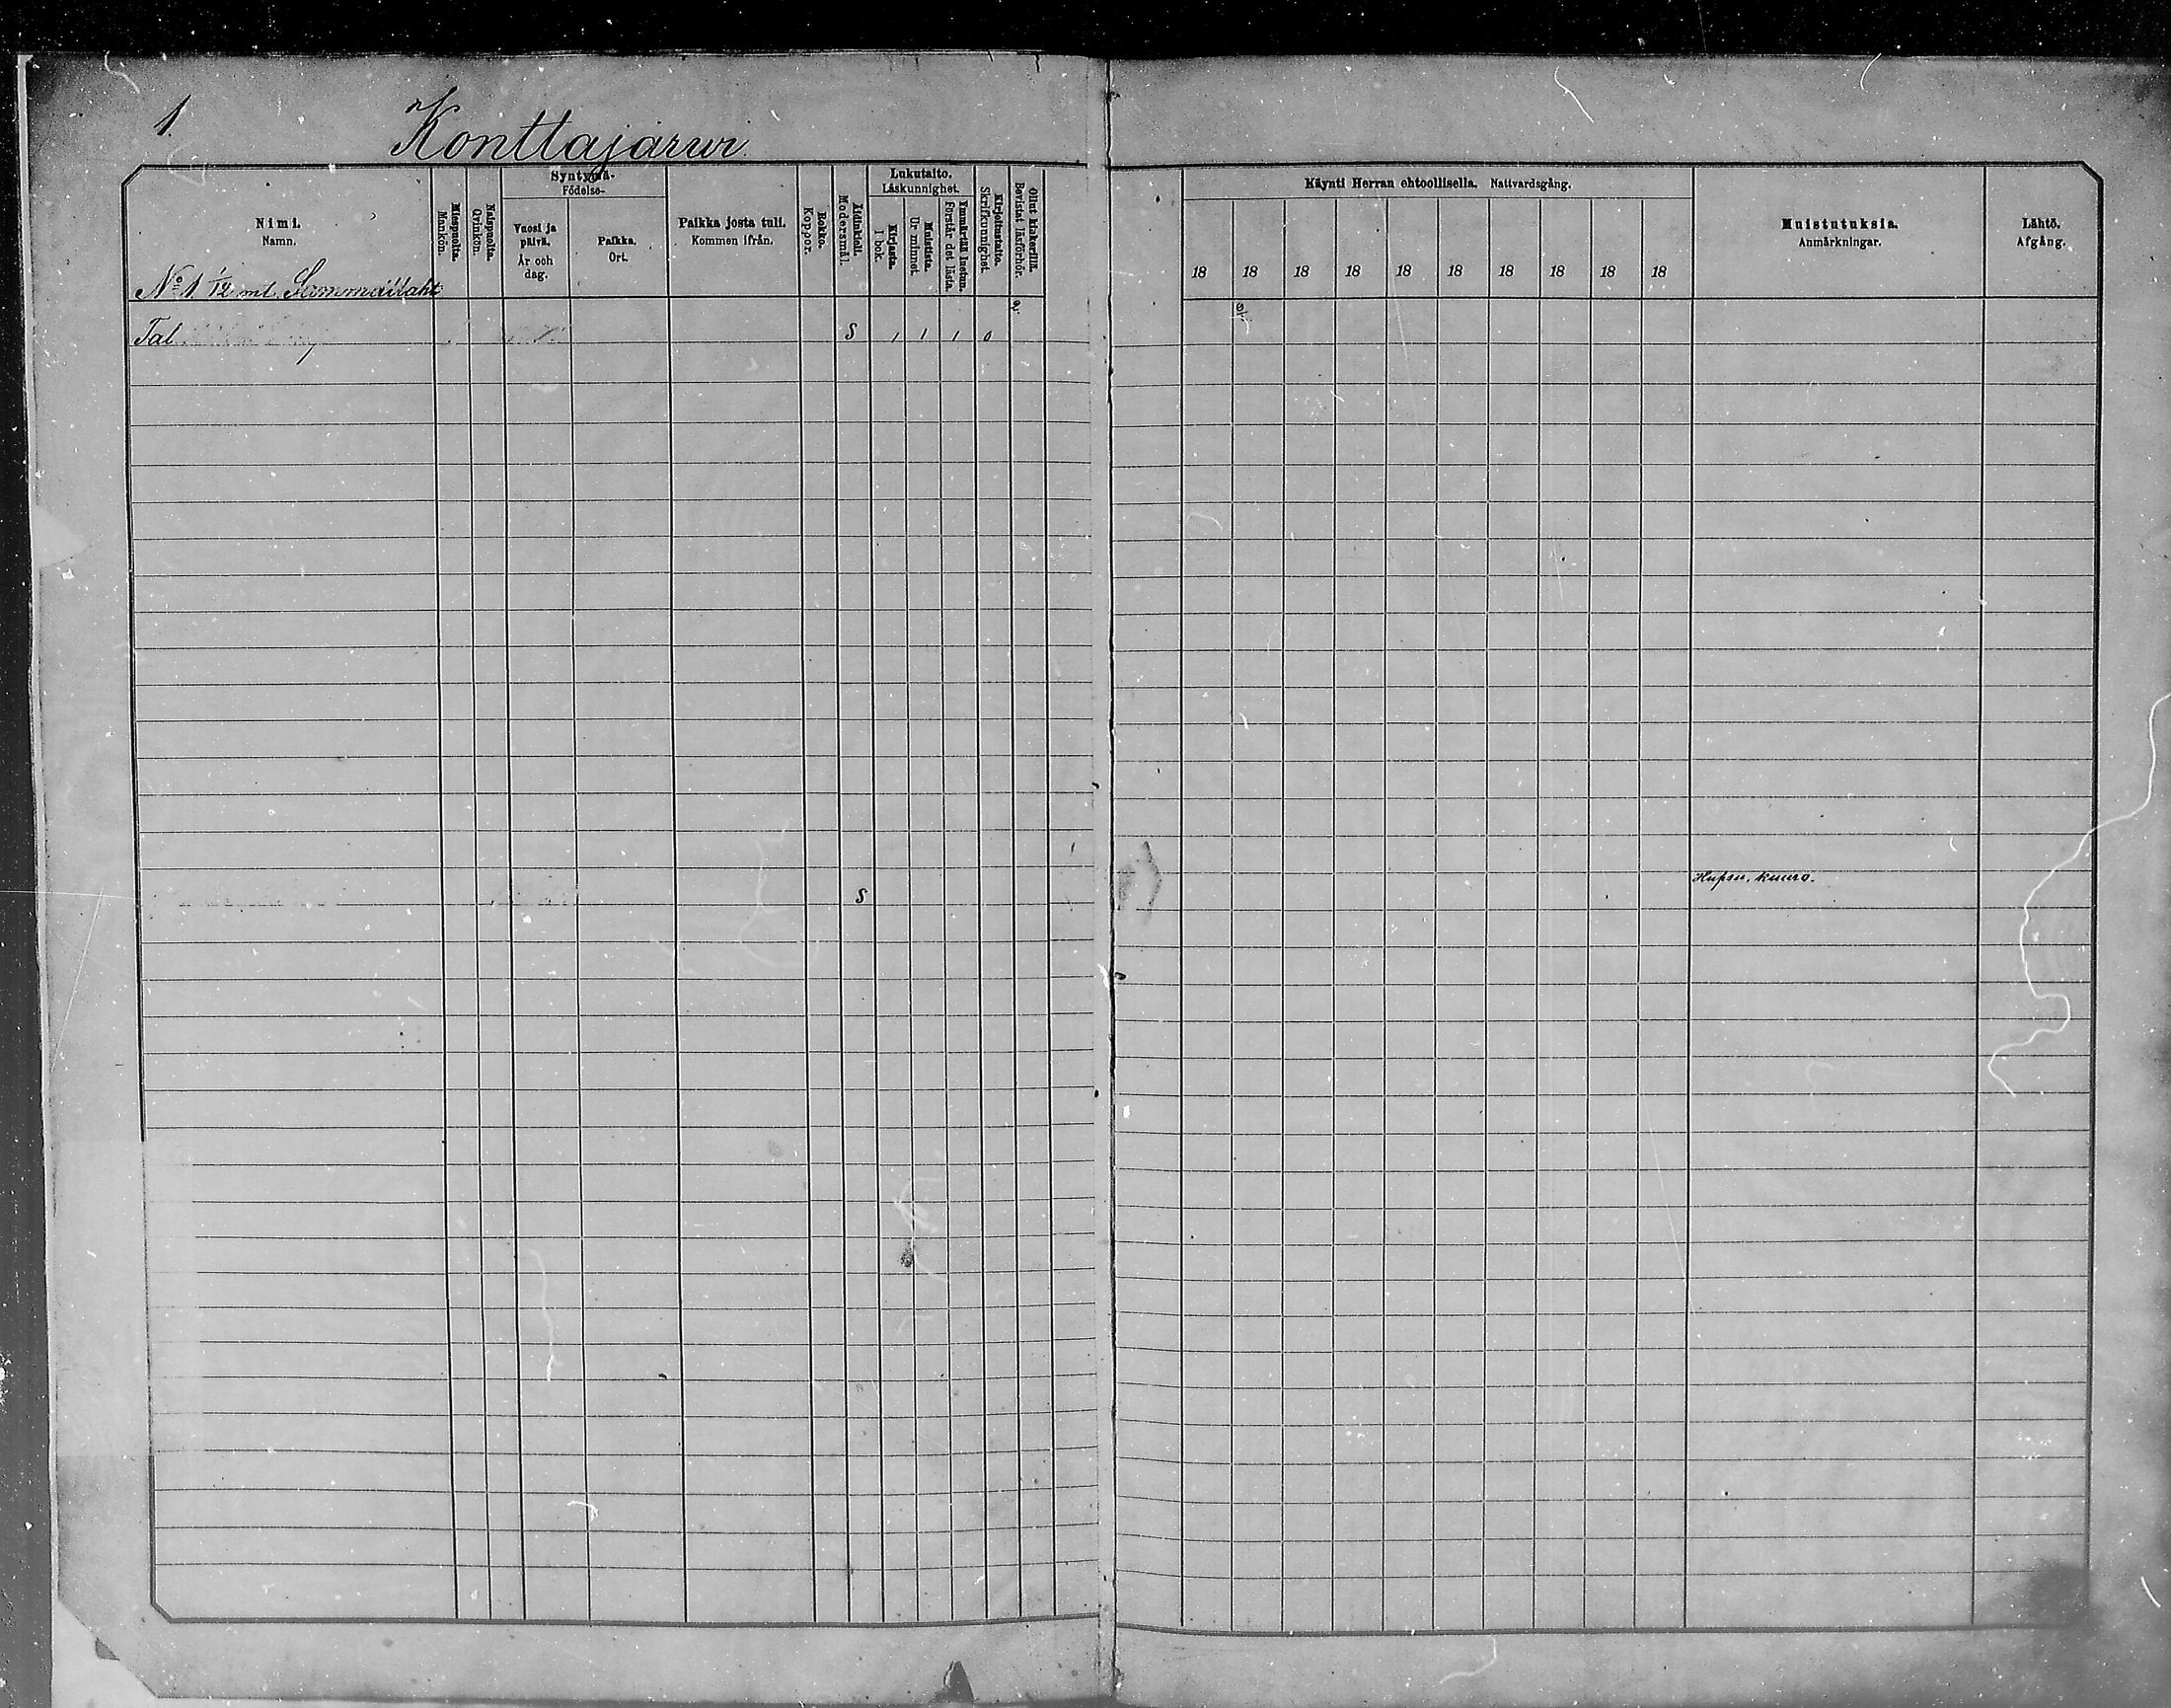 1.
Konttajärwi.
Nimi.
Namn.
Miespuolta.
Mankön.
Naispuolta.
Qvinkön.
Syntymä-
Födelse-
Vuosi ja päivä.
År och dag.
Paikka.
Ort.
Paikka josta tuli.
Kommen ifrån.
Rokko.
Koppor.
Äidinkieli.
Modersmål.
Lukutaito.
Läskunnighet.
Kirjasta.
I bok.
Muistista.
Ur minnet.
Ymmärtää luetun.
Förstår det lästa.
Kirjoitustaito.
Skrifkunnighet.
Ollut kinkerillä.
Bevistat läsförhör.
Käynti Herran ehtoollisella. Nattvardsgång.
18 18 18 18 18 18 18 18 18 18
Muistutuksia.
Anmärkningar.
Lähtö.
Afgång.
No 1 1/12 mt.
Tal S 1 1 1 0
S
Hupsu, kuuro.